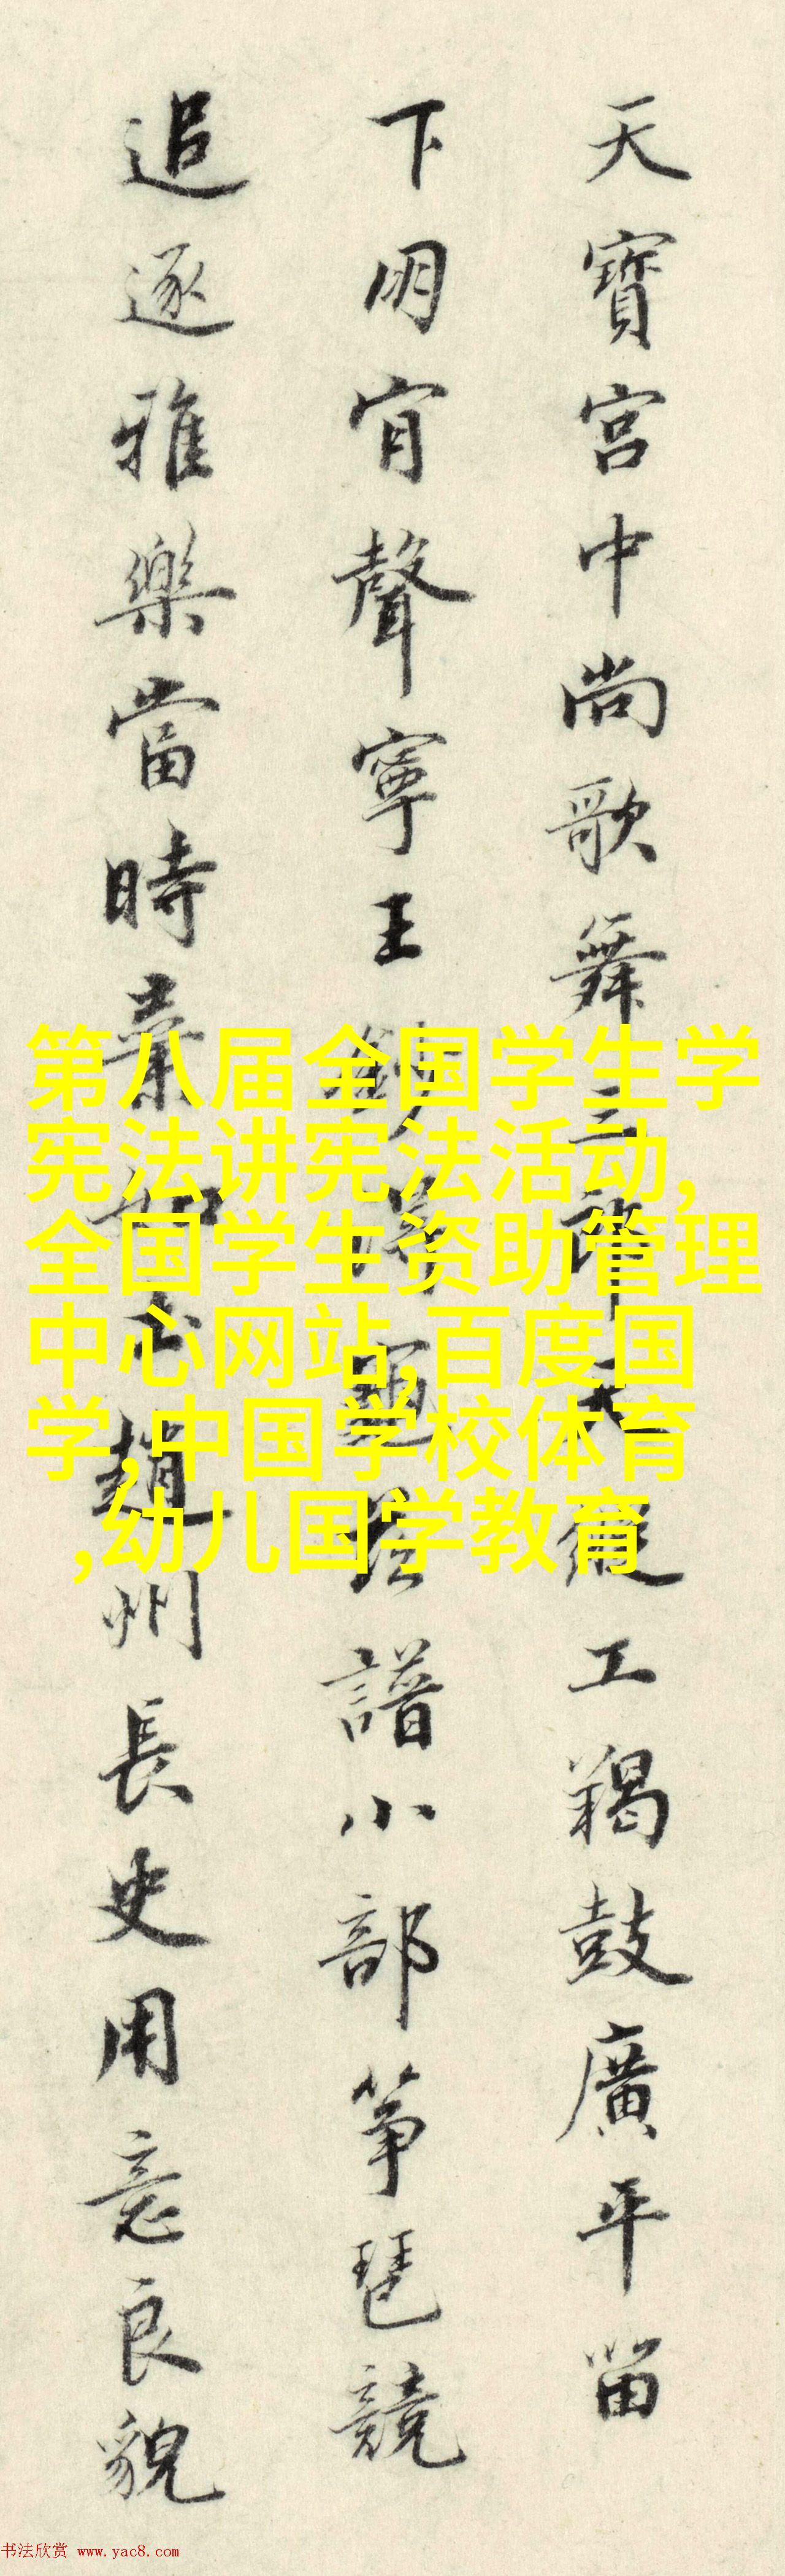 天寶宮中尚歌舞三郎天縱工羯鼓廣平留
下朋肯聲寧王譜小部箏琶競
追逐雅樂當時棄如土趙州長史用意良貌
第八届全国学生学
宪法讲宪法活动,
全国学生资助管理
中心网站,百度国
学,中国学校体育
,幼儿国学教育
书法欣赏 www.yac8.com